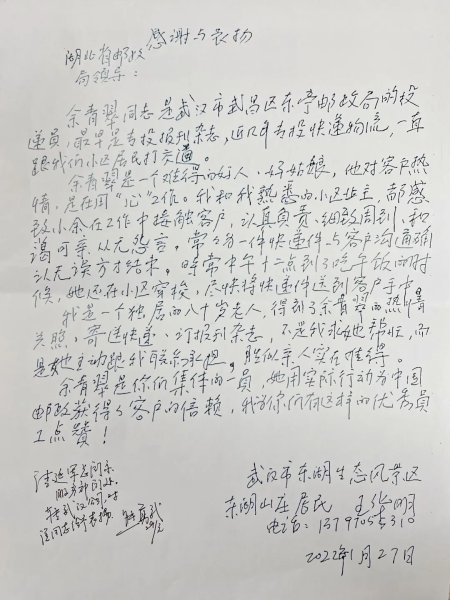 感谢与表扬
湖北省邮政
局领导：
余青翠同志是武汉市武昌区东亭邮政局的投
递员，最早是专投报刊杂志，近几年专投快递物流，一直
跟我们小区居民打交道。
余青翠是一个难得的好人、好姑娘，他对客户热
情，是在用“心”工作。我和我熟悉的小区业主，都感
到小余在工作中接触客户，认真负责、细致周到、和
蔼可亲从无怨言。常为一件快速件与客户沟通确
认无误方才结束。时常中午十二点到了吃午饭的时
候，她还在小区穿梭，尽快将快递件送到客户手中。
我是一个独居的八十岁老人，得到了余青翠的热情
关照，寄送快递、订报刊杂志，不是我求她帮忙，而
是她主动跟我联系承担，胜似亲人实在难得。
余青翠是你们集体的一员，她用实际行动为中国
邮政获得了客户的信赖，我为你们有这样的优秀员
工点赞！
武汉市东湖生态风景区
东湖山庄居民
电话：13797055310
2022年1月27日